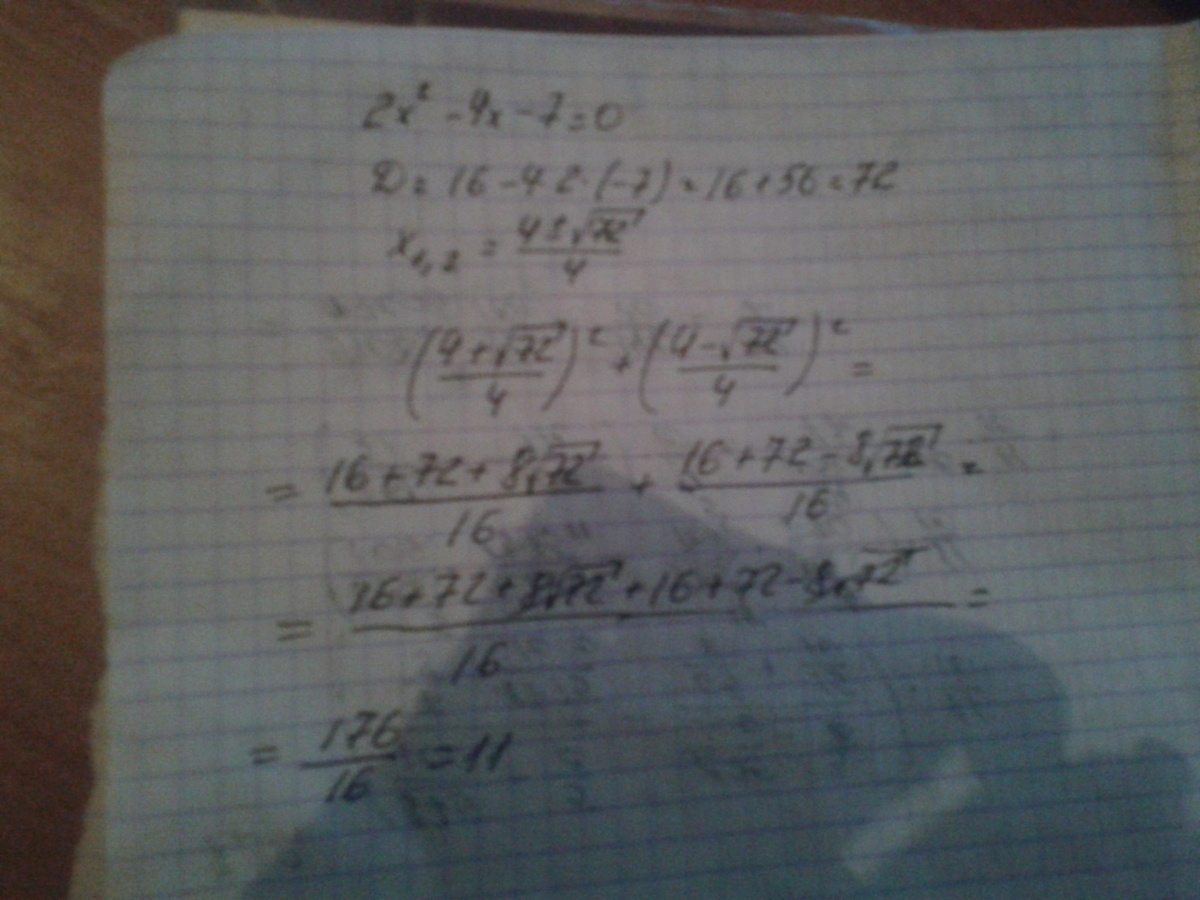 2x² - 4x - 7 = 0
D = 16 - 4·2·(-7) = 16 + 56 = 72
x₁,₂ = (4 ± √72)/4
((4 + √72)/4)² + ((4 - √72)/4)² =
= (16 + 72 + 8√72)/16 + (16 + 72 - 8√72)/16 =
= (16 + 72 + 8√72 + 16 + 72 - 8√72)/16 =
= 176/16 = 11